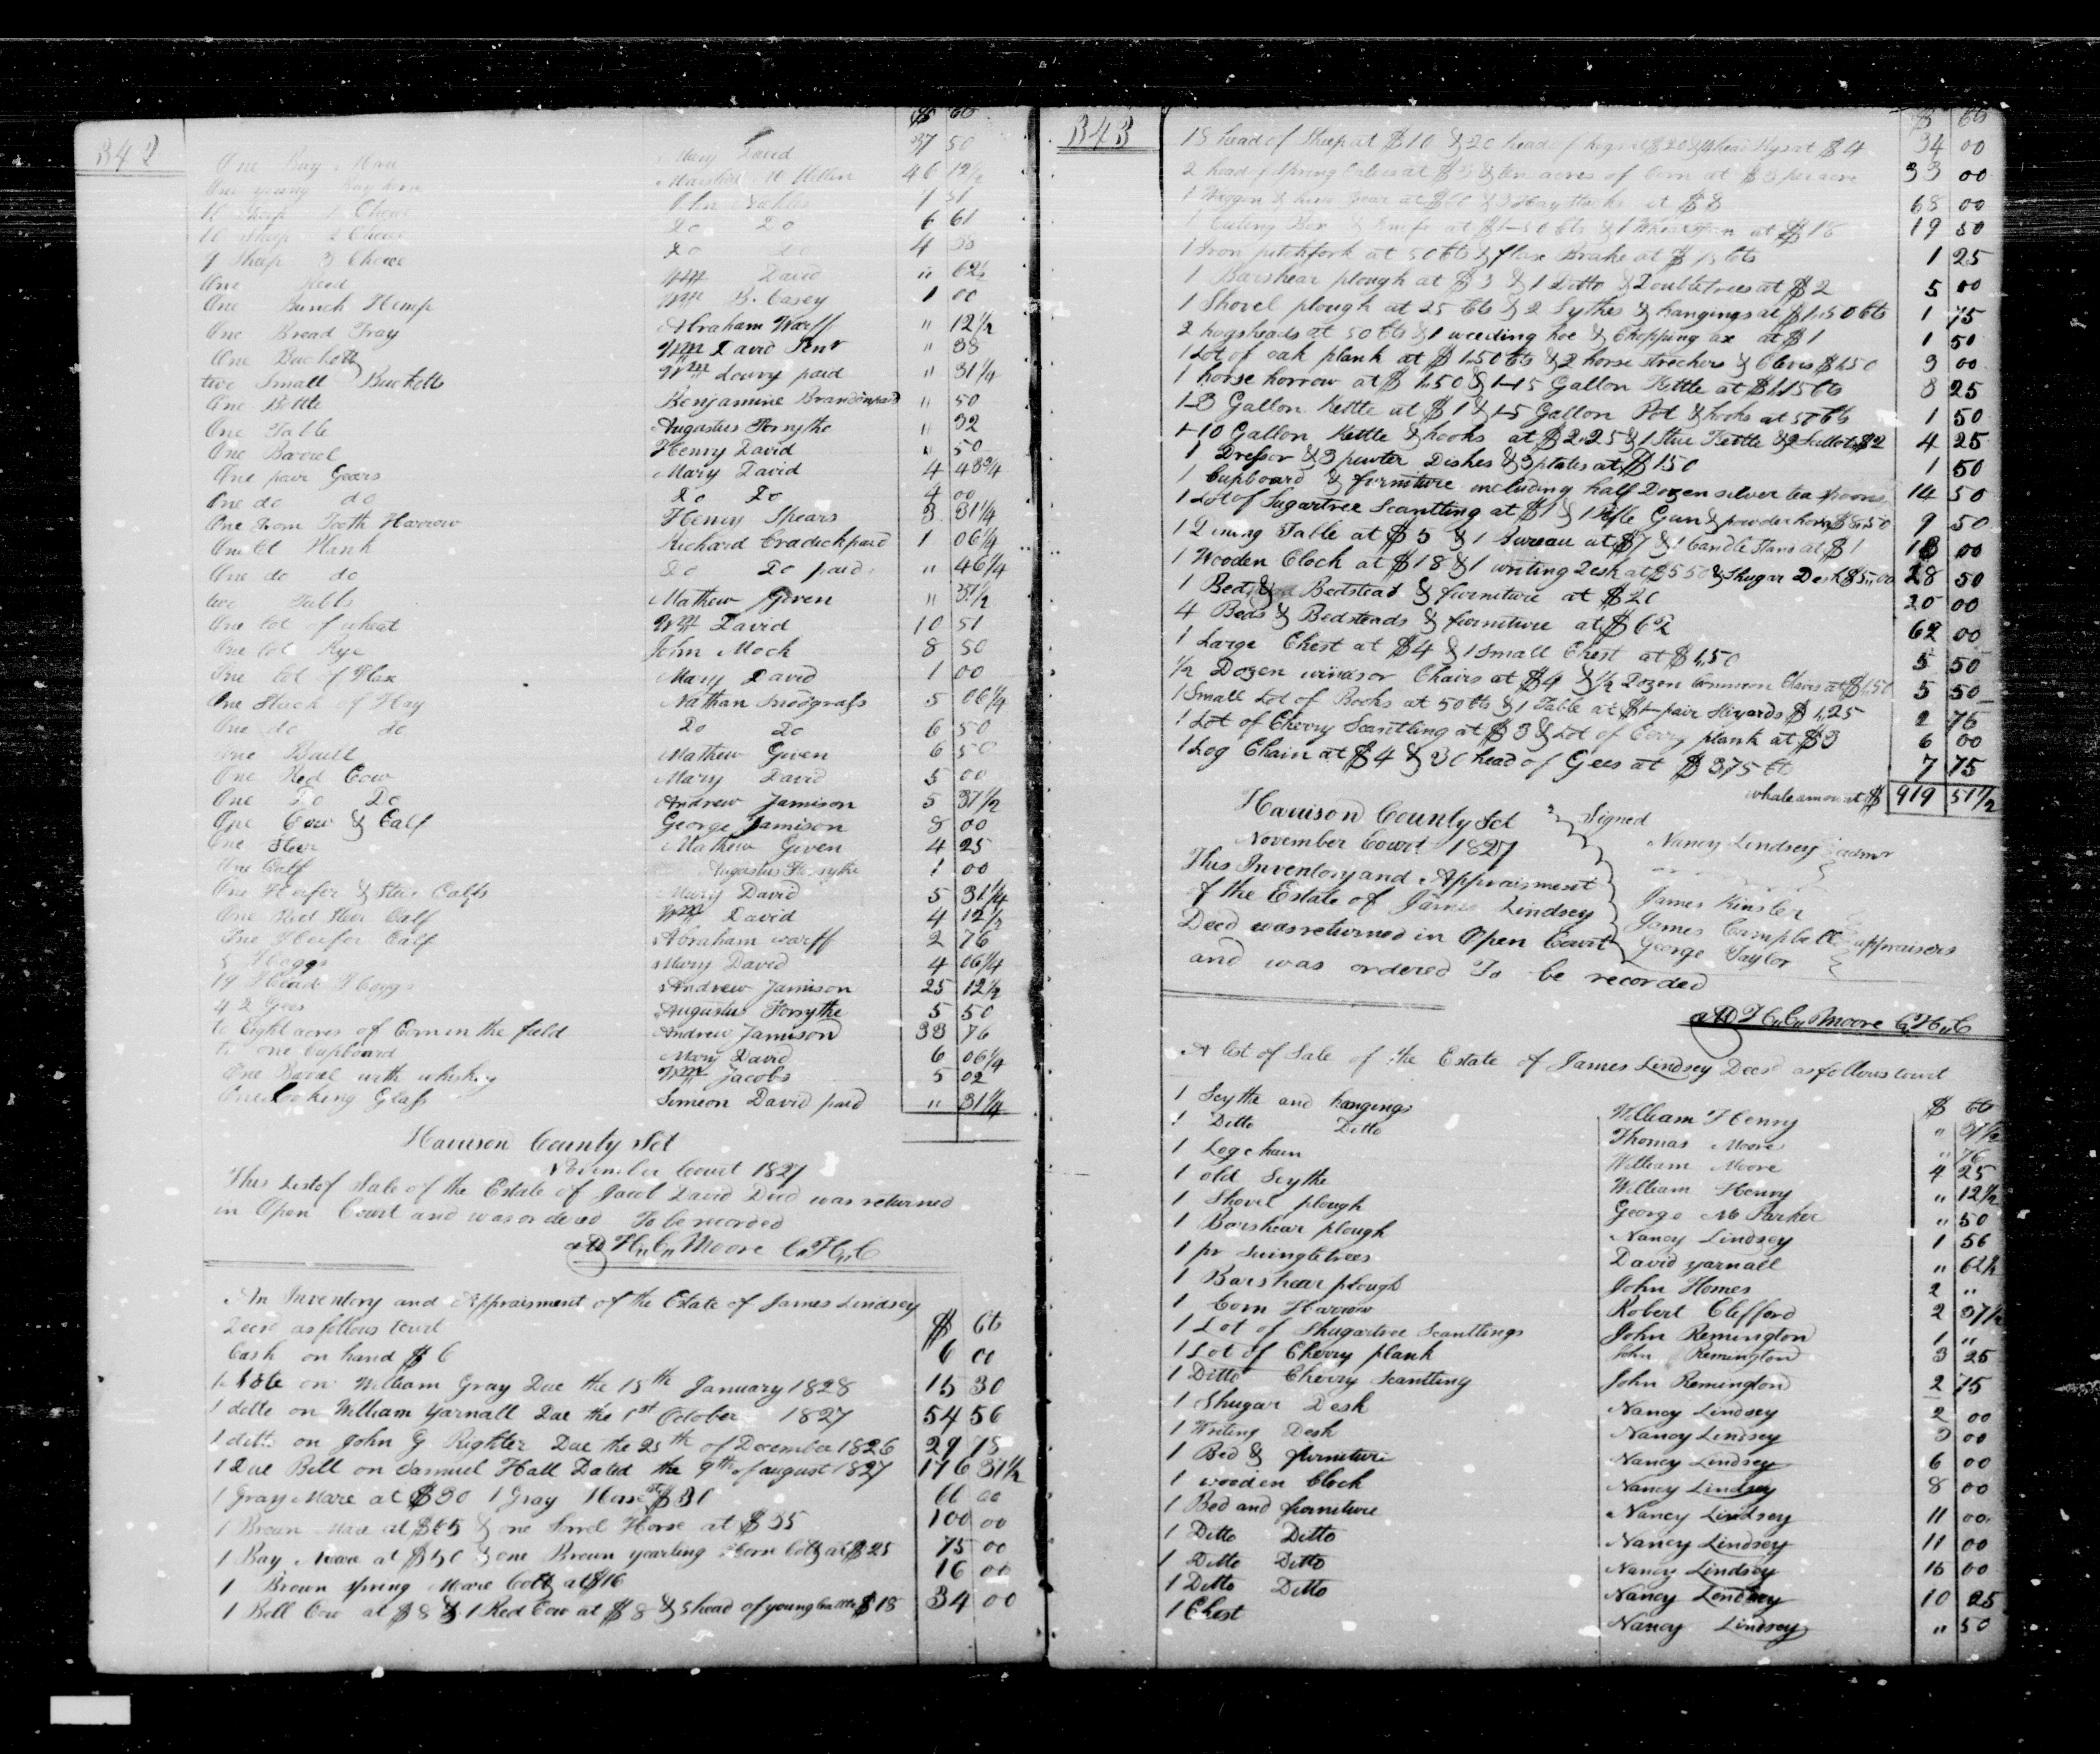 342
$ Cts
One Bay Mare Mary David 37 50
One young Bay horse Marshal 46 12½
10 Sheep 1 Choice 1 51
10 Sheep 2 Choice Do Do 6 61
9 Sheep 3 Choice Do Do 4 38
One Reed Wm David " 62½
One Bunch Hemp Wm B. Casey 1 00
One Bread Tray Abraham Warff " 12½
One Buckett Wm David Senr " 38
two Small Bucketts Wm Lowry paid " 31¼
One Bottle Benjamine " 50
One Table Augustus Forsythe " 32
One Barrel Henry David " 50
One pair Gears Mary David 4 43¾
One do do Do Do 4 00
One Iron Tooth Harrow Henry Spears 3 31¼
One Lt Plank Richard Cradick paid 1 06¼
One do do Do Do paid " 46¼
two Tubbs Mathew Given " 37½
One lot of wheat Wm David 10 51
One lot Rye John Mock 8 50
One lot of Flax Mary David 1 00
One Stack of Hay Nathan Snodgrass 5 06¼
One do do Do Do 6 50
One Bull Mathew Given 6 50
One Red Cow Mary David 5 00
One Do Do Andrew Jamison 5 37½
One Cow & Calf George Jamison 8 00
One Steer Mathew Given 4 25
One Calf Augustus Forsythe 1 00
One Heifer & Steer Calfs Mary David 5 31¼
One Red Steer Calf Wm David 4 12½
One Heifer Calf Abraham warff 2 76
5 Hoggs Mary David 4 06¼
19 Head Hoggs Andrew Jamison 25 12½
42 Gees Augustus Forsythe 5 50
to Eight acres of Corn in the field Andrew Jamison 33 76
to one Cupboard Mary David 6 06¼
One Barel with whiskey Wm Jacobs 5 02
One Looking Glass Simeon David paid " 31¼
Harrison County Sct
November Court 1827
This List of Sale of the Estate of Jacob David Decd was returned
in Open Court and was ordered To be recorded
att H,, C,, Moore C,,H,,C
An Inventory and Appraisment of the Estate of James Lindsey
Decd as follows towit $ Cts
Cash on hand $6 6 00
1 Note on William Gray Due the 15th January 1828 15 30
1 ditto on William Yarnall Due the 1st October 1827 54 56
1 ditto on John G Righter Due the 25th of December 1826 29 75
1 Due Bill on Samuel Hall Dated the 9th of august 1827 176 31½
1 Gray Mare at $30 1 Gray Horse at $31 61 00
1 Brown Mare at $65 & one Sorrel Horse at $35 100 00
1 Bay Mare at $50 & one Brown yearling Horse Colt at $25 75 00
1 Brown Spring Mare Colt at $16 16 00
1 Bell Cow at $8 & 1 Red Cow at $8 & 5 head of young Cattle $18 34 00
343
$ Cts
15 head of Sheep at $10 & 20 head of hogs at $20 & 4 head Hogs at $4 34 00
2 head of Spring Calves at $3 & ten acres of Corn at $3 per acre 33 00
1 Waggon & hind Gear at $60 & 3 Hay Stacks at $8 68 00
1 Cuting Box & Knife at $1-50 Cts & 1 at $18 19 50
1 Iron pitchfork at 50 Cts & flax Brake at $ 75 Cts 1 25
1 Barshear plough at $3 & 1 Ditto & Doubletrees at $2 5 00
1 Shovel plough at 25 Cts & 2 Sythes & hangings at $1,,50 Cts 1 75
2 hogsheads at 50 Cts & 1 weeding hoe & Chopping ax at $1 1 50
1 Lot of oak plank at $1.50 Cts & 2 horse strechers & Clevis $1,50 3 00
1 horse horrow at $1,50 & 1-15 Gallon Kettle at $1,,75 Cts 3 25
1-3 Gallon Kettle at $1 & 1-5 Gallon Pot & hooks at 50 Cts 1 50
1-10 Gallon Kettle & hooks at $2.25 & 1 Stue Kettle & 2 Skillets $2 4 25
1 Dressor & 3 pewter Dishes & 3 plates at $1 50 1 50
1 Cupboard & furniture including half Dozen silver tea Spoons 14 50
1 Lot of Sugartree Scantling at $1 & 1 Rifle Gun & powderhorn $8,,50 9 50
1 Dining Table at $5 & 1 Bureau at $7 & 1 Candle Stand at $1 13 00
1 Wooden Clock at $18 & 1 writing Desk at $5 50 & Shugar Desk $5,,00 28 50
1 Bed & Bedstead & furniture at $20 20 00
4 Beds & Bedsteads & furniture at $62 62 00
1 Large Chest at $4 & 1 Small Chest at $1,,50 5 50
½ Dozen windsor Chairs at $4 & ½ Dozen Common Chairs at $1,50 5 50
1 Small Lot of Books at 50 Cts & 1 Table at $1-pair Stilyards $1,25 2 75
1 Lot of Cherry Scantling at $3 & Lot of Cerry plank at $3 6 00
1 Log Chain at $4 & 30 head of Gees at $3,75 Cts 7 75
whole amount $ 919 51½
Harrison County Sct Signed
November Court 1827 Nancy Lindsey admr
This Inventory and Appraisment
of the Estate of James Lindsey James Kinsler
Decd was returned in Open Court James Campbell appraisers
and was ordered To be recorded George Taylor
att H,,C,, Moore C,,H,,C
A list of Sale of the Estate of James Lindsey Decd as follows towit
$ Cts
1 Scythe and hangings William Henry " 37½
1 Ditto Ditto Thomas Moore " 76
1 Log chain William Moore 4 25
1 old Scythe William Henry " 12½
1 Shovel plough George Mc Parker " 50
1 Barshear plough Nancy Lindsey 1 56
1 pr Swingletrees David Yarnall " 62½
1 Barshear plough John Homes 2 "
1 Corn Harrow Robert Clefford 2 37½
1 Lot of Shugartree Scantlings John Remington 1 "
1 Lot of Cherry plank John Remington 3 25
1 Ditto Cherry Scantling John Remington 2 75
1 Shugar Desk Nancy Lindsey 2 00
1 Writing Desk Nancy Lindsey 3 00
1 Bed & furniture Nancy Lindsey 6 00
1 wooden Clock Nancy Lindsey 8 00
1 Bed and furniture Nancy Lindsey 11 00
1 Ditto Ditto Nancy Lindsey 11 00
1 Ditto Ditto Nancy Lindsey 15 00
1 Ditto Ditto Nancy Lindsey 10 25
1 Chest Nancy Lindsey " 50